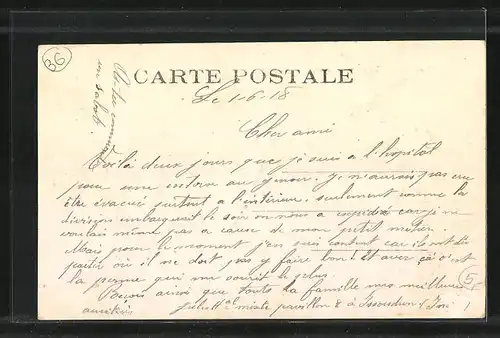 36
CARTE POSTALE
Le 1-6-18
Cher ami
Voilà deux jours que je suis a l'hopital
pour une entorse au genou. Je n'aurais pas cru
être évacué surtout a l'intérieur, seulement comme la
division embarquait le soir on nous a expédié car je ne
voulais même pas a cause de mon petit
Mais pour le moment j'en suis content car ils ont dû
partir où il ne doit pas y faire bon et avec ça c'est
la perme qui me sourit le plus.
Reçois ainsi que toute la famille mes meilleures
amitiés
Hal mixte pavillon 8 à Issoudun
5